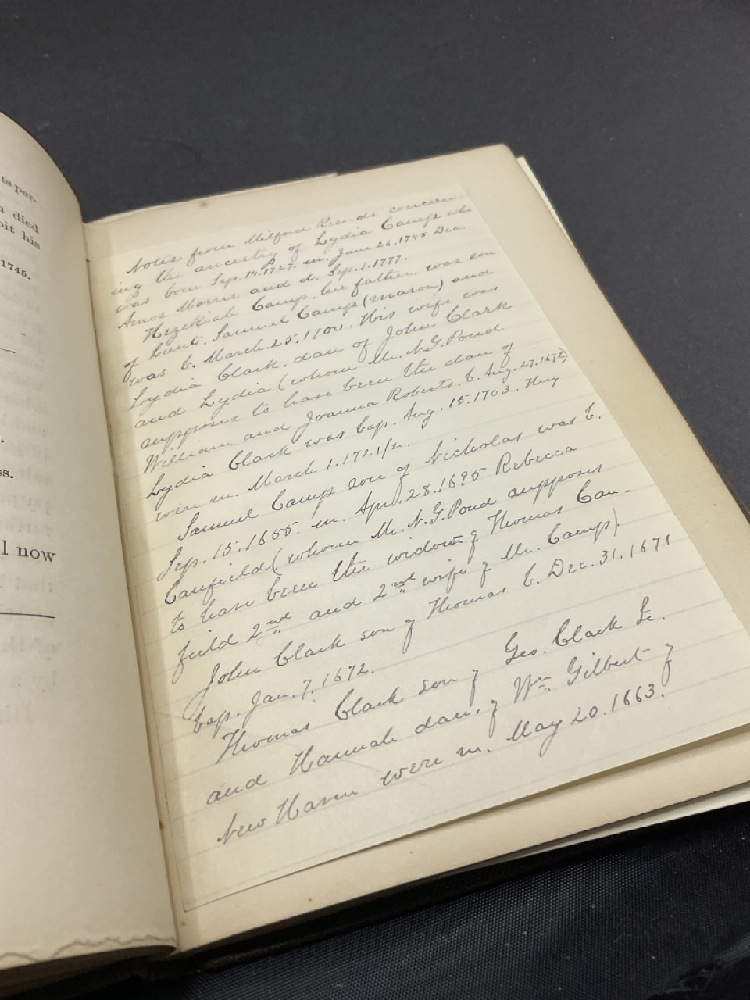 ts per-
died
bit his
1745.
ss.
l now
Notes from Milford Records concern-
ing the ancestry of Lydia Camp who
was born Sep. 14, 1727. m. June 26. 1745 Dea.
Amos Morris and d. Sep. 1. 1777.
Hezekiah Camp, her father, was son
of Lieut. Samuel Camp (mason) and
was b. March 25, 1700. His wife was
Lydia Clark, dau of John Clark
and Lydia (whom Mr. N. G. Pond
supposes to have been the dau of
William and Joanna Roberts. b. Aug. 27. 1672)
Lydia Clark was bap. Aug. 15. 1703. They
were m. March 1. 1721/2.
Samuel Camp son of Nicholas was b.
Sep. 15. 1655. m. Apr. 28. 1695 Rebecca
Canfield (whom Mr. N. G. Pond supposes
to have been the widow of Thomas Can-
field 2nd and 2nd wife of Mr. Camp).
John Clark son of Thomas b. Dec. 31. 1671
bap. Jan. 7. 1672.
Thomas Clark son of Geo. Clark Sr.
and Hannah dau. of Wm. Gilbert of
New Haven were m. May 20. 1663.